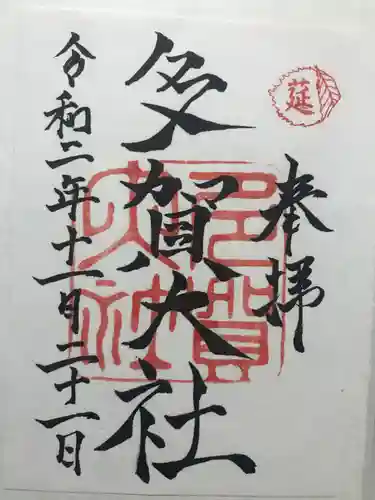 莚
奉拝
多賀大社
多賀大社
令和二年十一月二十一日